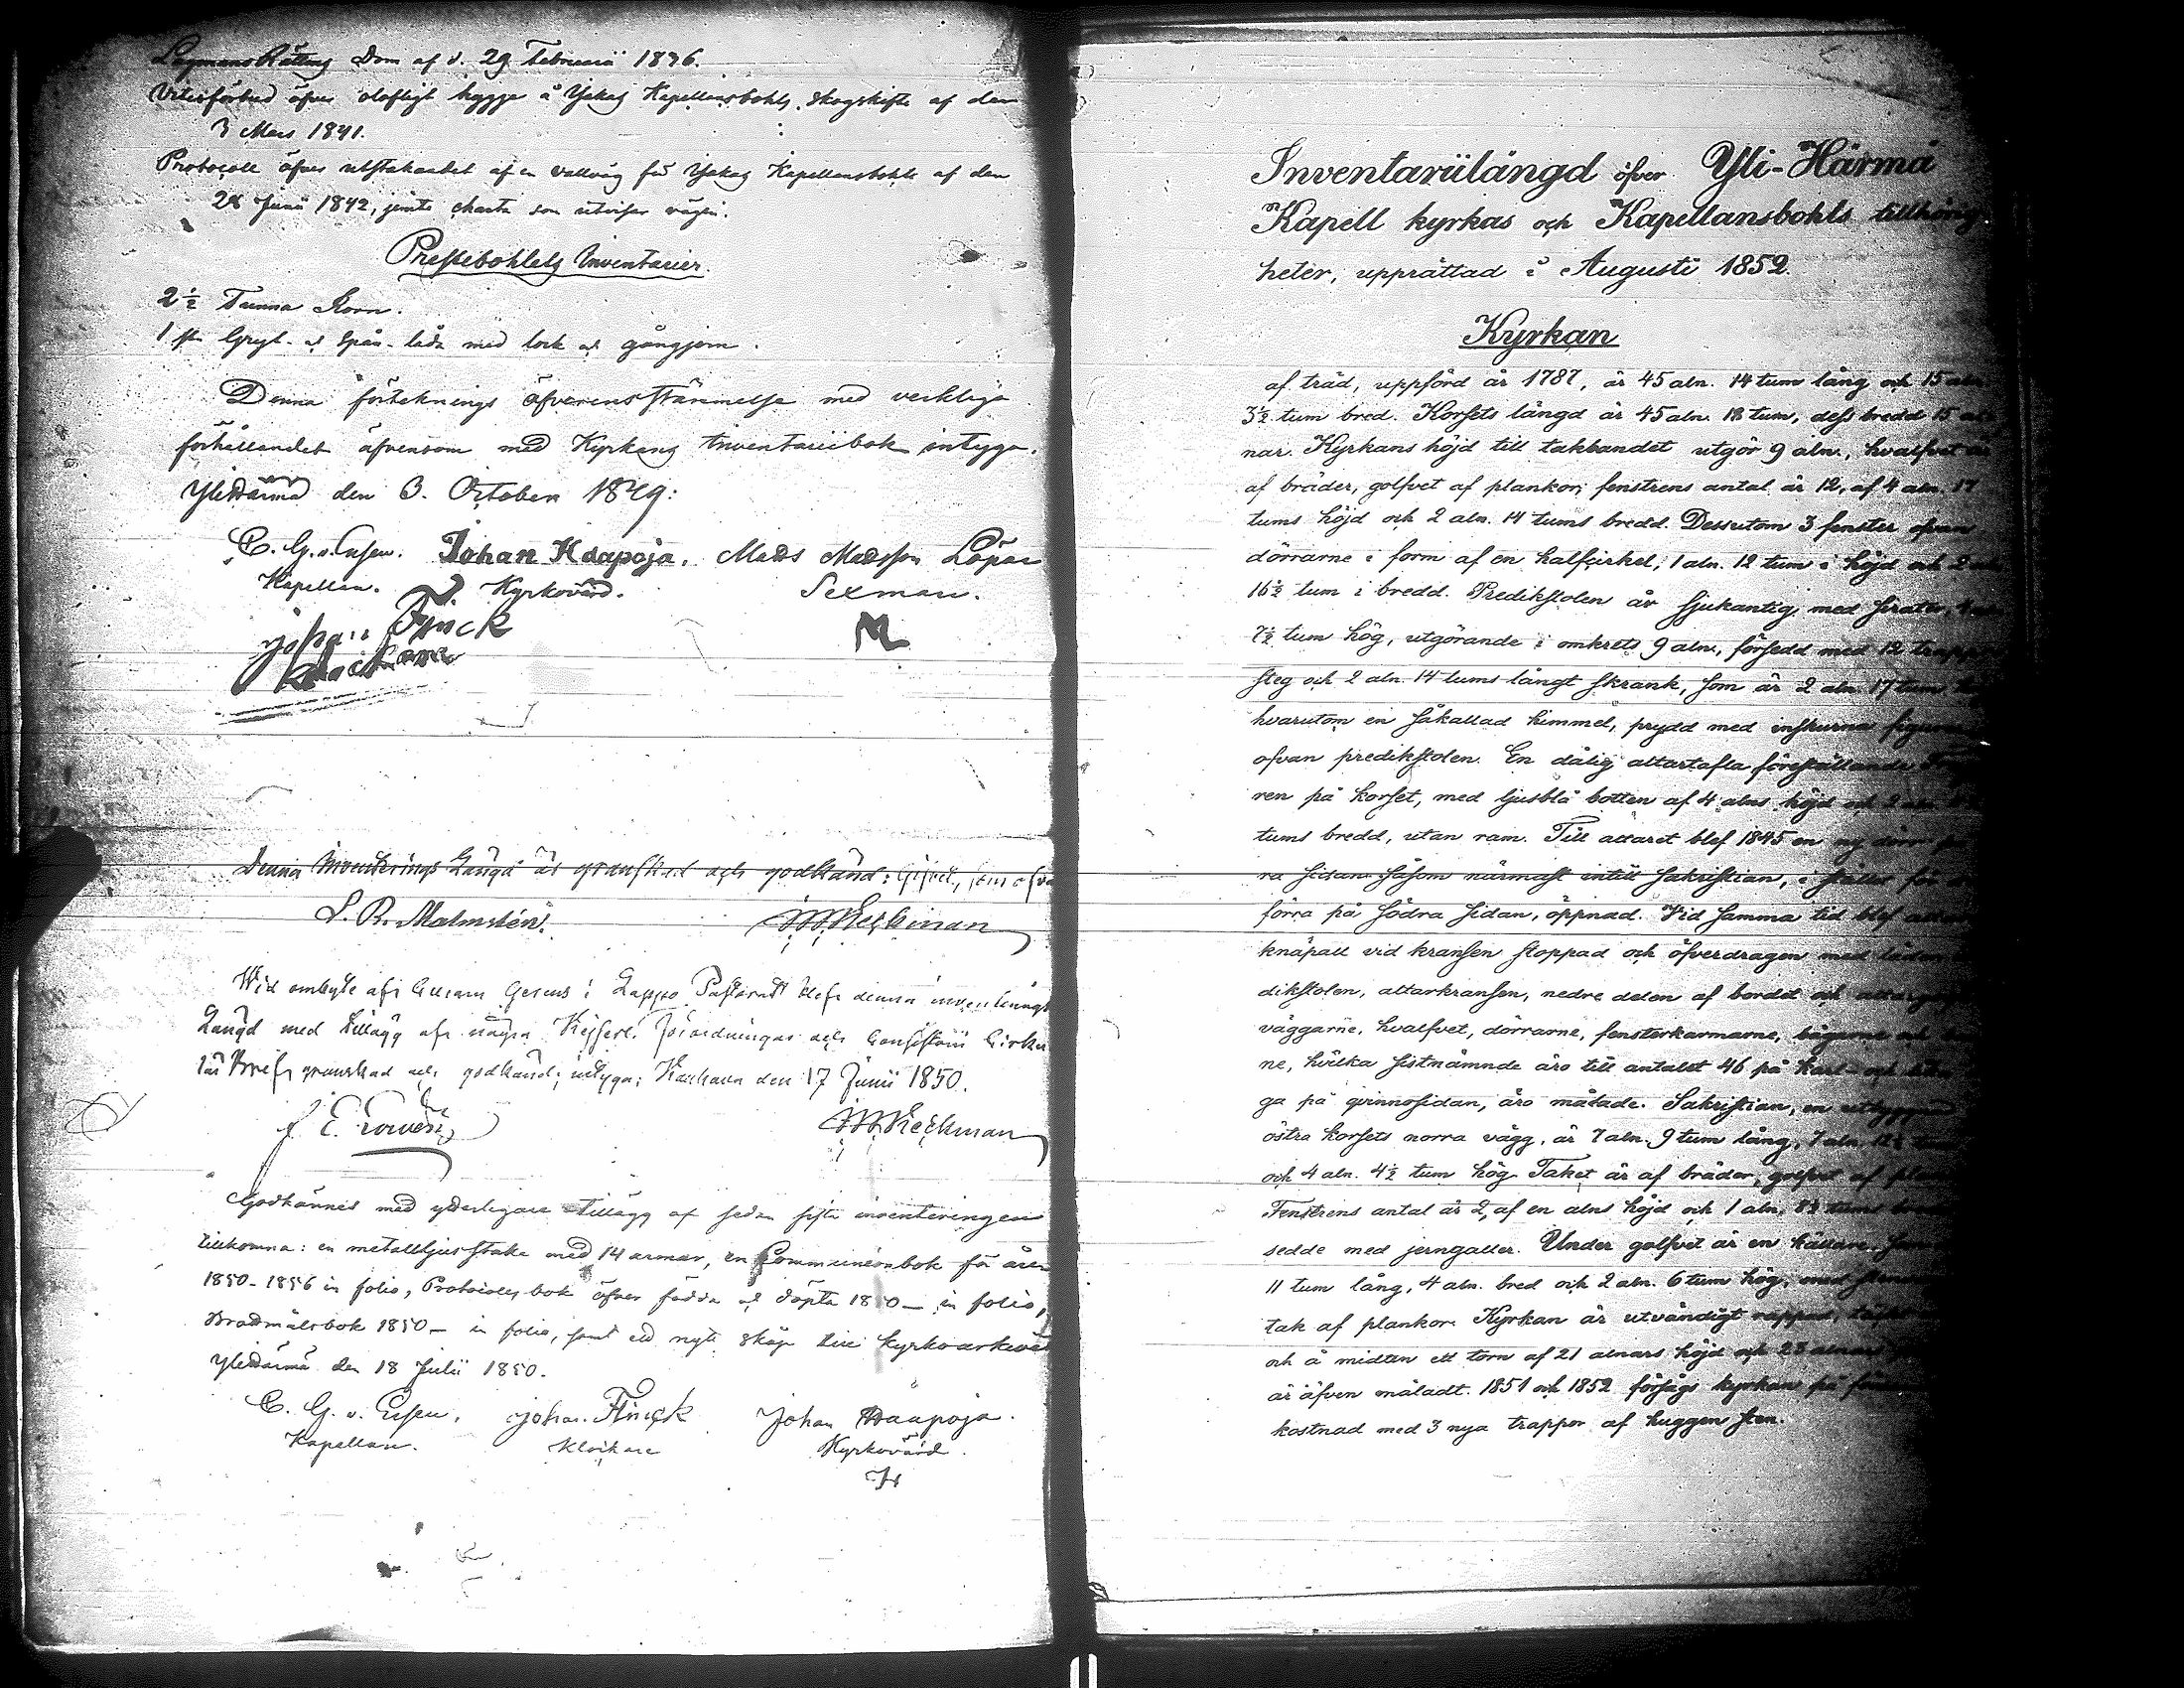 LagmansRättens Dom af d. 29 Februarii 1836.
Vitesförbud öfver olofligt hygge å Ylekas Kapellansbohls skogskifte af den
3 Mars 1841.
Protocoll öfver utstakandet af en vallväg för Kapellansbohls af den
28 Junii 1842, jemte charta som utvisar vägen.
Prestebohlets Inventarier.
2½ Tunna Korn.
1 st. Gryt- och Spån-låda med lock och gångjern.
Denna förteknings öfverensstämmelse med verkliga
förhållandet äfvensom med Kyrkans Inventariibok intyga.
YliHärmä den 3. October 1849:
C. G. v. Essen. Johan Haapoja. Mats Matsson Löpar
Kapellan. Kyrkovärd. Sexman.
Johan Finck M
Klockare
Denna Inventerings Längd är granskad och godkänd: Gifvet, som ofvan
L. R. Malmstén. Heckman
Wid ombyte af Curam Gerens i Lappo Pastorat blef denna inventerings
Längd med tillägg af några Kejserl. förordningar och Consistorii Cirku
lär Bref granskad och godkänd; intyga; Kauhava den 17 Junii 1850.
Heckman
Godkännes med ytterligare tillägg af sedan sista inventeringen
tillkomna: en metallljusstake med 14 armar, en Communionbok för åren
1850-1856 in folio, Protocollsbok öfver födda och döpta 1850- in folio,
Brottmålsbok 1850- in folio, samt ett nytt skåp till kyrkoarkivet
YliHärmä den 18 Julii 1850.
C. G. v. Essen. Johan Finck Johan Haapoja.
Kapellan. Klockare Kyrkovärd.
Inventariilängd öfver Yli-Härmä
Kapell kyrkas och Kapellansbohls tillhörig-
heter, upprättad i Augusti 1852.
Kyrkan
af träd, uppförd år 1787, är 45 aln. 14 tum lång och 15 aln.
3½ tum bred. Korsets längd är 45 aln. 18 tum, dess bredd 15 al
nar. Kyrkans höjd till takbandet utgör 9 aln., hvalfvet är
af bräder, golfvet af plankor; fenstrens antal är 12, af 4 aln. 17
tums höjd och 2 aln. 14 tums bredd. Dessutom 3 fenster ofvan
dörrarne i form af en halfcirkel, 1 aln. 12 tum i höjd och 2 aln.
16½ tum i bredd. Predikstolen är sjukantig med sirater,
7½ tum hög, utgörande i omkrets 9 aln., försedd med 12 trapp
steg och 2 aln. 14 tums långt skrank, som är 2 aln. 17 tum
hvarutom en såkallad himmel, prydd med inskurna figurer
ofvan predikstolen. En dålig altartafla föreställande
ren på korset, med ljusblå botten af 4 alns höjd och 2 aln.
tums bredd, utan ram. Till altaret blef 1845 en ny dörr
ra sidan såsom närmast intill Sakristian, i stället för
förra på södra sidan, öppnad. Vid samma tid blef
knäpall vid kransen stoppad och öfverdragen med läder.
dikstolen, altarkransen, nedre delen af bordet och
väggarne, hvalfvet, dörrarne, fensterkarmarne, bågarne och
ne, hvilka sistnämnde äro till antalet 46 på karl- och
ga på qvinnosidan, äro målade. Sakristian, en utbyggnad
östra korsets norra vägg, är 7 aln. 9 tum lång, 7 aln. 12½ tum
och 4 aln. 4½ tum hög. Taket är af bräder, golfvet af
Fenstrens antal är 2, af en alns höjd och 1 aln. 8½ tums
sedde med jerngaller. Under golfvet är en källare,
11 tum lång, 4 aln. bred och 2 aln. 6 tum hög, med
tak af plankor. Kyrkan är utvändigt rappad,
och å midten ett torn af 21 alnars höjd och 28 alnars
är äfven måladt. 1851 och 1852 försågs kyrkan på
kostnad med 3 nya trappor af huggen sten.